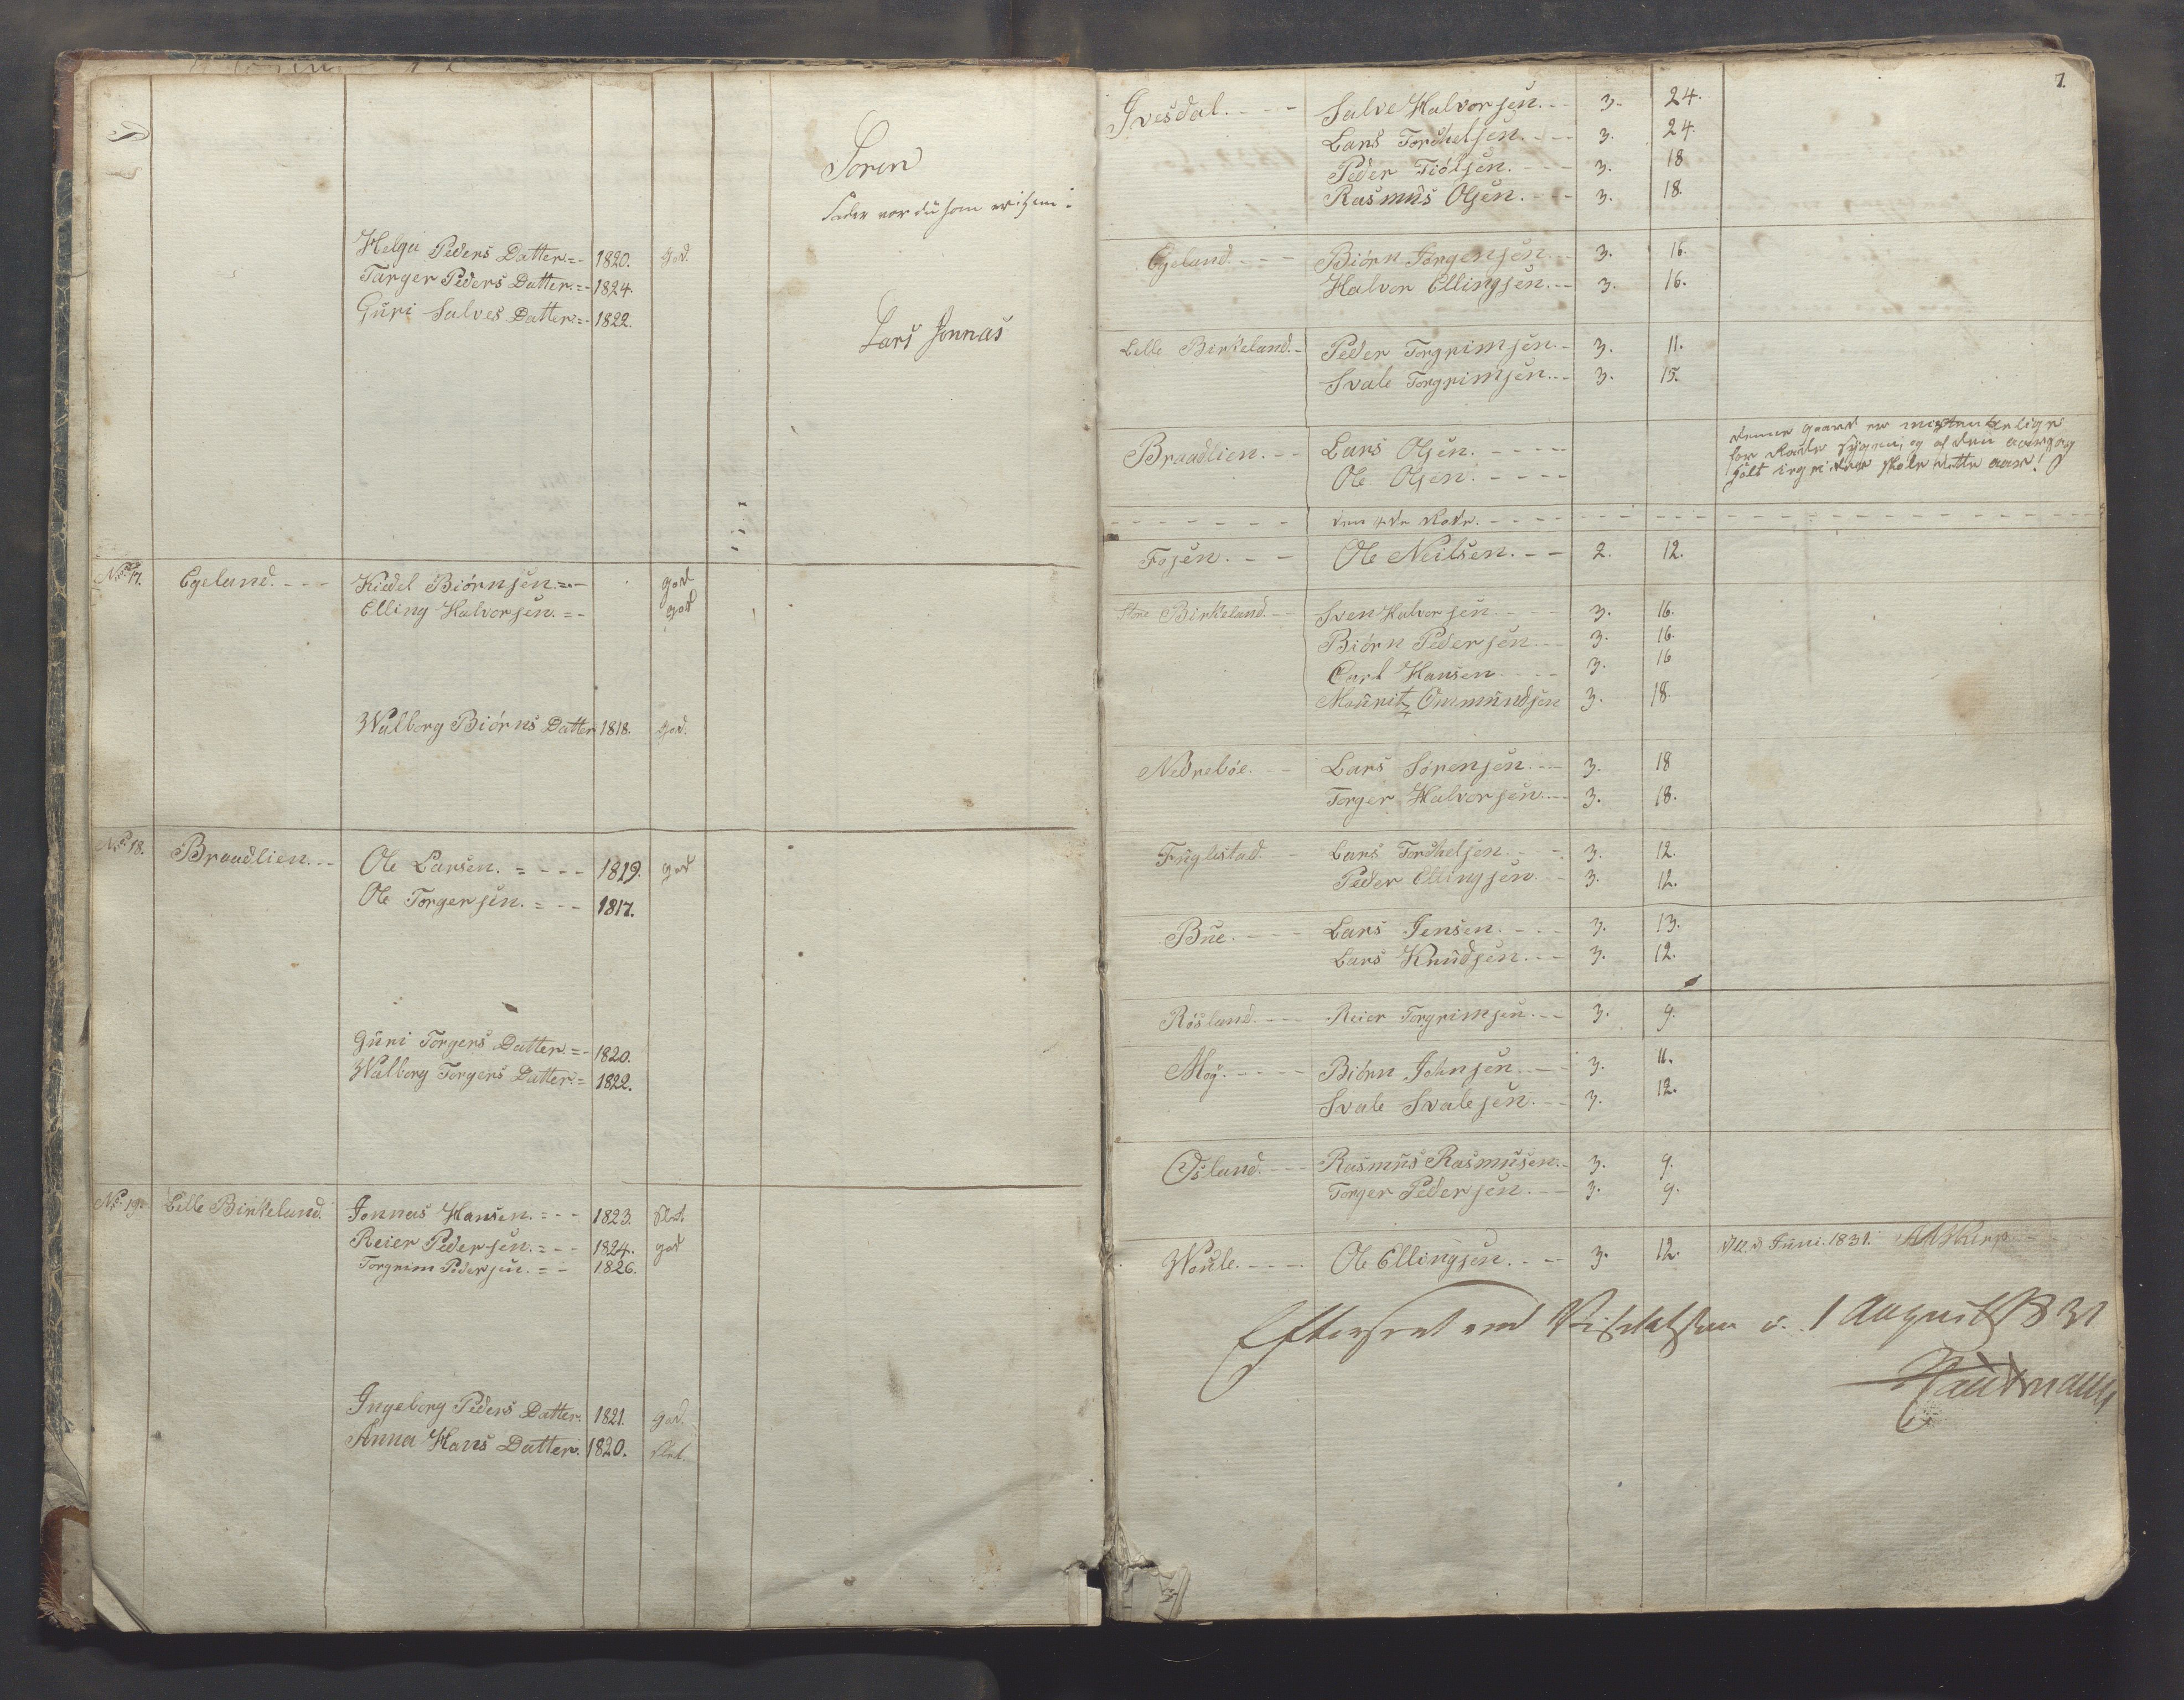 Soren
Fader vor du som
Helga Peders Datter. =- 1820. god.
Targer Peders Datter. =- 1824.
Guri Salves Datter. =- 1822.
Lars Jonnas
No. 17. Egeland. - - - Kiedel Biörnsen. =- god
Elling Halvorsen. =- god
Walborg Biörns Datter 1818. god.
No. 18. Braadlien. - - Ole Larsen. = - - - 1819. god
Ole Torgersen. = - - - 1817.
Guri Torgers Datter. =- 1820.
Walborg Torgers Datter. = 1822.
No. 19. Lelle Birkeland. Jonnas Hansen. = - - 1823. slet.
Reier Pedersen. = - - 1824. god
Torgrim Pedersen. = - 1826.
Ingeborg Peders Datter. 1821. god.
Anna Hans Datter. 1820. slet.
7.
Gvesdal. - - - - Salve Halvorsen. - - 3. 24.
Lars Torchelsen. - - - 3. 24.
Peder Tiölsen. - - - - 3. 18
Rasmus Olsen. - - - 3. 18.
Egeland. - - - Biörn Jörgensen. - - 3. 16.
Halvor Ellingsen. - - 3. 16.
Lelle Birkeland. - Peder Torgrimsen. - 3. 11.
Svale Torgrimsen. - - 3. 15.
Braadlien. - - Lars Olsen. - - - - -
Ole Olsen. - - - - -
denne gaard er mistenkelige
for Rade sygen, og af den aarsag
holt ingen skole dette aar!
- - - - - - - den 4de Rode. - - - - -
Fojen. - - - Ole Neilsen. - - 2. 12.
Store Birkeland. - - Sven Halvorsen - - - 3. 16.
Biörn Pedersen - - 3. 16.
Carl Hansen - - - - 3. 16
Mauritz Ommundsen 3. 18.
Nedreböe. - - Lars Sörensen. - - - 3. 18
Torger Halvorsen. - - 3. 18.
Fuglestad. - Lars Torchelsen. - - - 3. 12.
Peder Ellingsen. - - 3. 12.
Bue. - - - - Lars Jensen. - - - 3. 13.
Lars Knudsen. - - - 3. 12.
Rösland. - - - Reier Torgrimsen. - - 3. 9.
Moy. - - - - - Biörn Johnsen. - - - 3. 11.
Svale Svalesen. - - 3. 12.
Osland. - - - Rasmus Rasmusen. - 3. 9.
Torger Pedersen. - - 3. 9.
Woule. - - - - Ole Ellingsen. - - - 3. 12. Juni. 1831.
Efterseet ved Visitatsen d. 1 August 1831